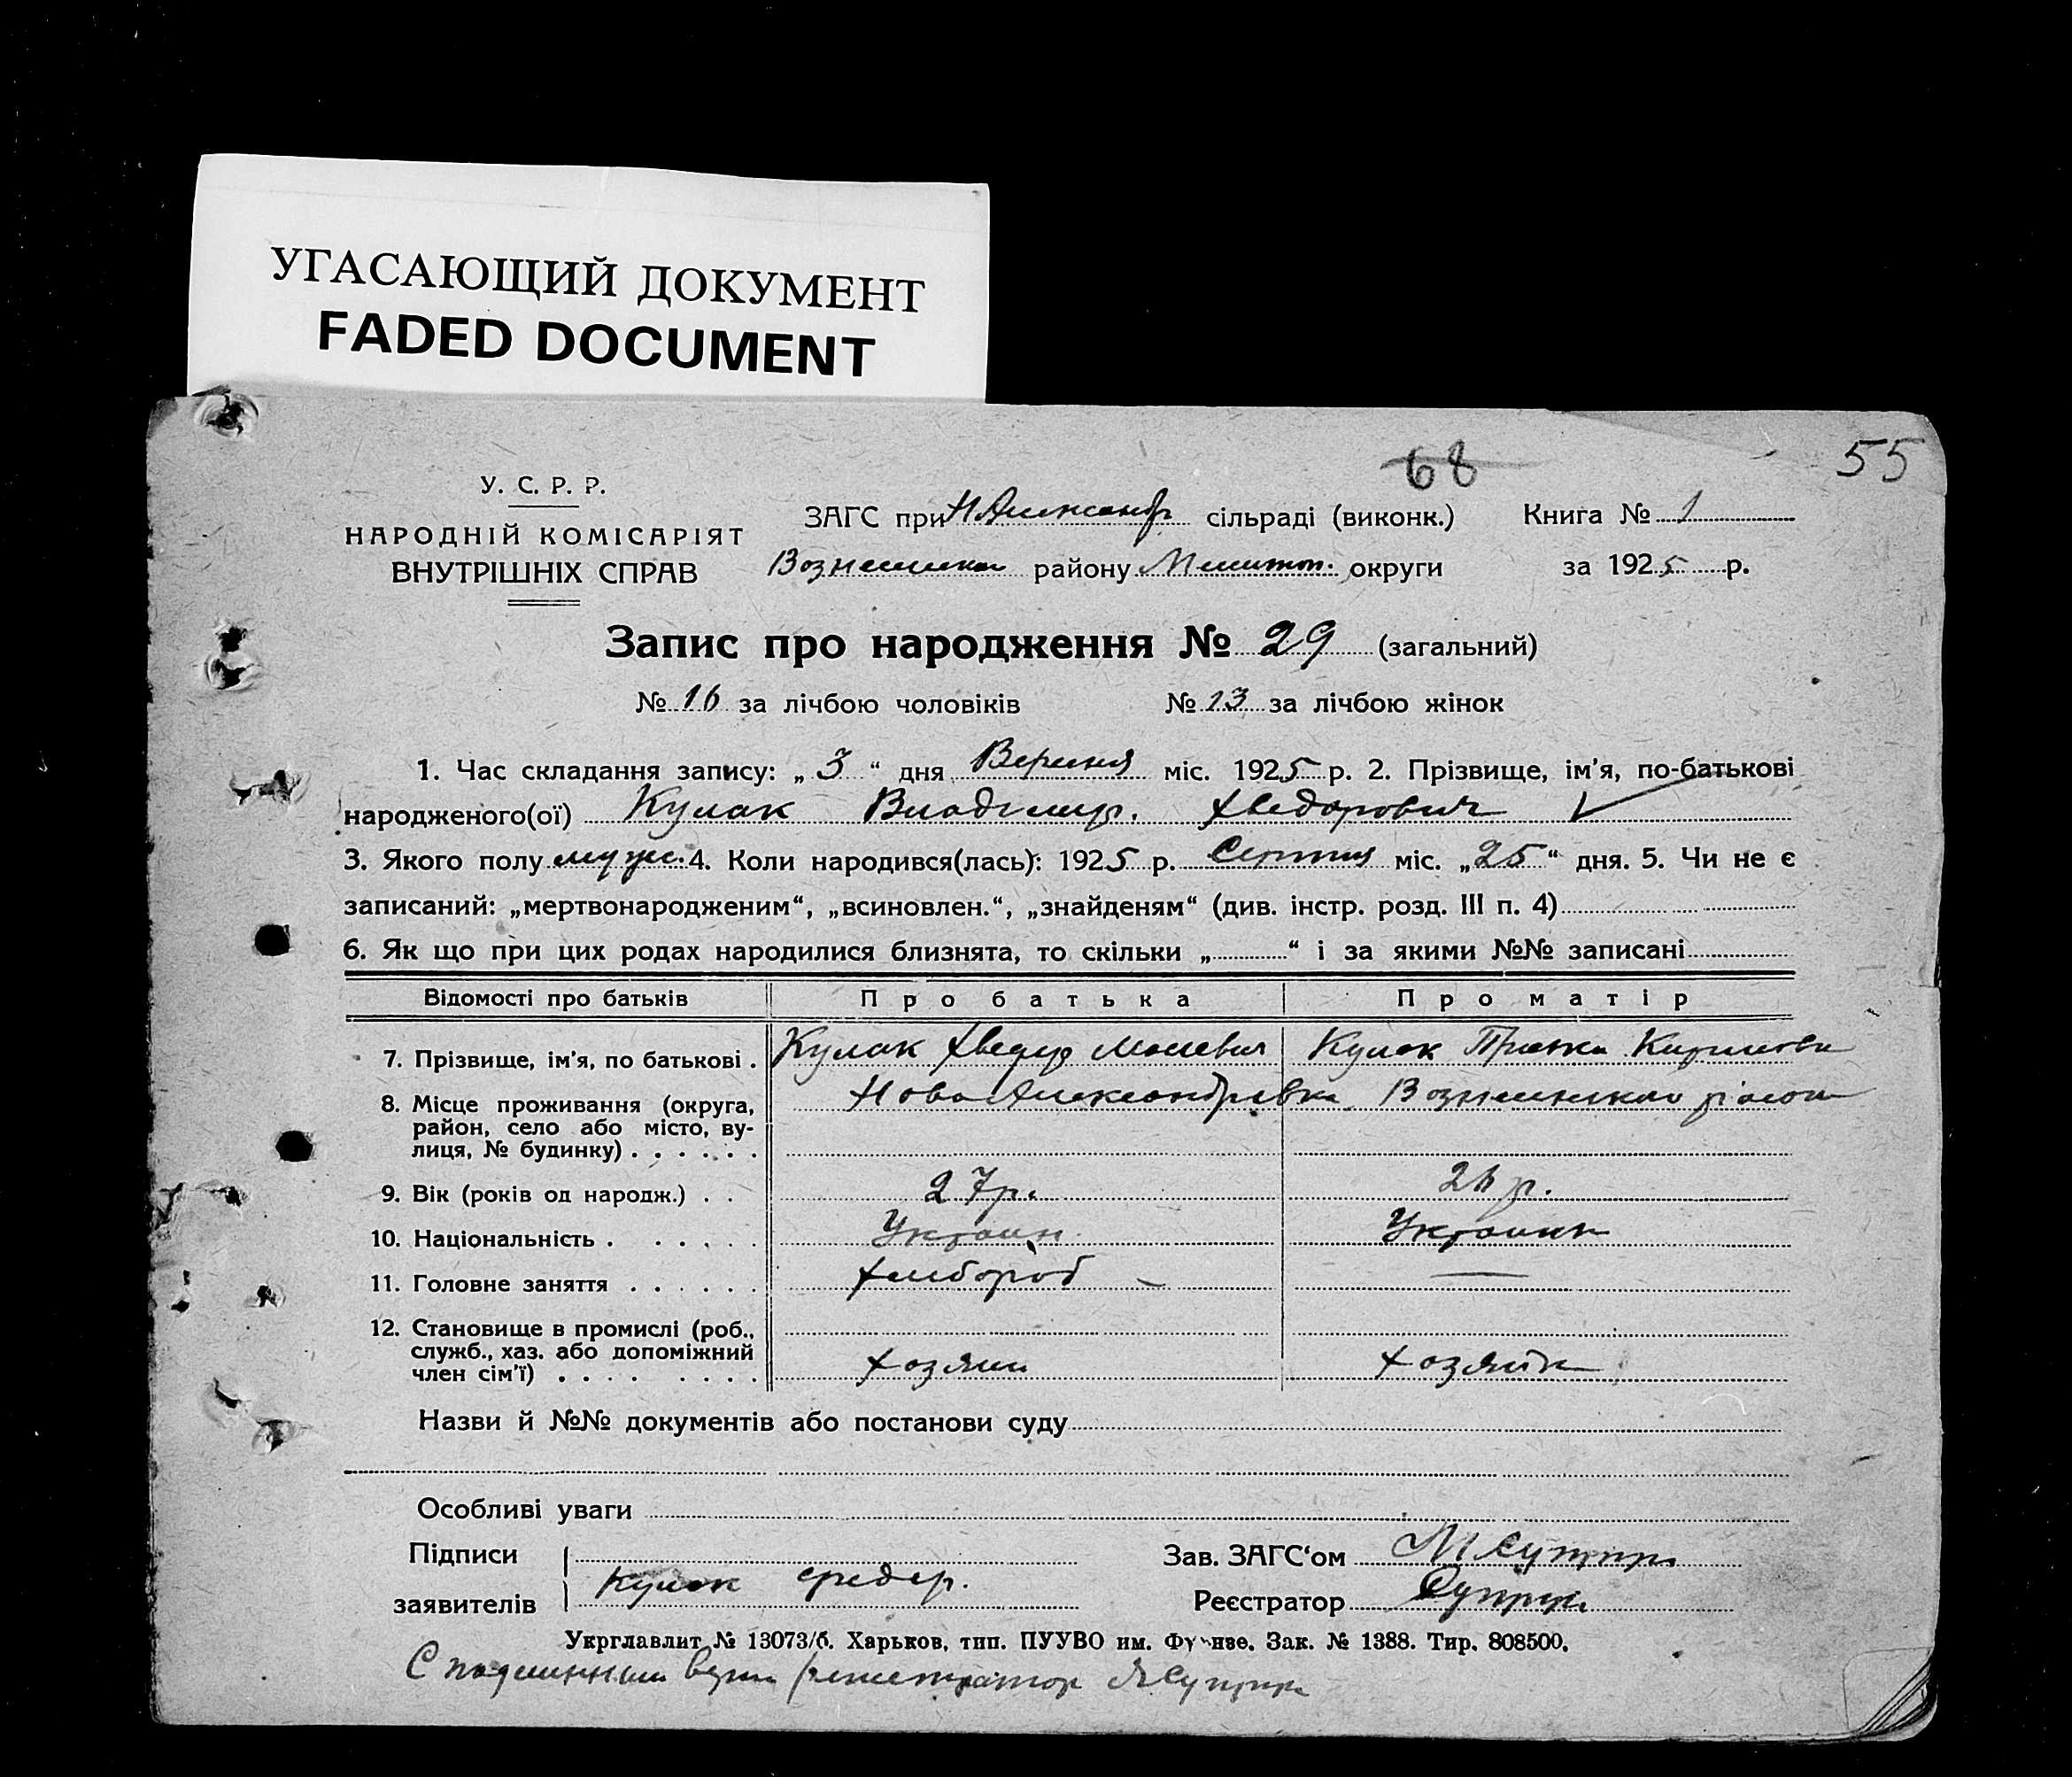 УГАСАЮЩИЙ ДОКУМЕНТ
FADED DOCUMENT
68
55
У. С. Р. Р.
НАРОДНІЙ КОМІСАРІЯТ
ВНУТРІШНІХ СПРАВ
ЗАГС при Н Александр сільраді (виконк.) Книга № 1
району Мелитоп. округи за 1925 р.
Запис про народження № 29 (загальний)
№ 16 за лічбою чоловіків № 13 за лічбою жінок
1. Час складання запису: „ 3 “ дня Вересня міс. 1925 р. 2. Прізвище, ім'я, по-батькові
народженого(ої) Кулак Владимир. Хведорович
3. Якого полу муж. 4. Коли народився(лась): 1925 р. Серпня міс. „ 25 “ дня. 5. Чи не є
записаний: „мертвонародженим“, „всиновлен.“, „знайденям“ (див. інстр. розд. III п. 4)
6. Як що при цих родах народилися близнята, то скільки „ “ і за якими №№ записані
Відомості про батьків Про батька Про матір
7. Прізвище, ім'я, по батькові . Кулак Хведур Кулак
8. Місце проживання (округа, Ново Александровка
район, село або місто, ву-
лиця, № будинку) . . . . . .
9. Вік (років од народж.) . . 27 р. 26 р.
10. Національність . . . . . . Украин. Украинк
11. Головне заняття . . . . . . Хлибороб —
12. Становище в промислі (роб.,
служб., хаз. або допоміжний Хозяин Хозяйк
член сім'ї) . . . . . . . .
Назви й №№ документів або постанови суду
Особливі уваги
Підписи Зав. ЗАГС‘ом
заявителів Кулак Реєстратор Супрун
Укрглавлит № 13073/б. Харьков, тип. ПУУВО им. Фрунзе. Зак. № 1388. Тир. 808500.
С подлинным